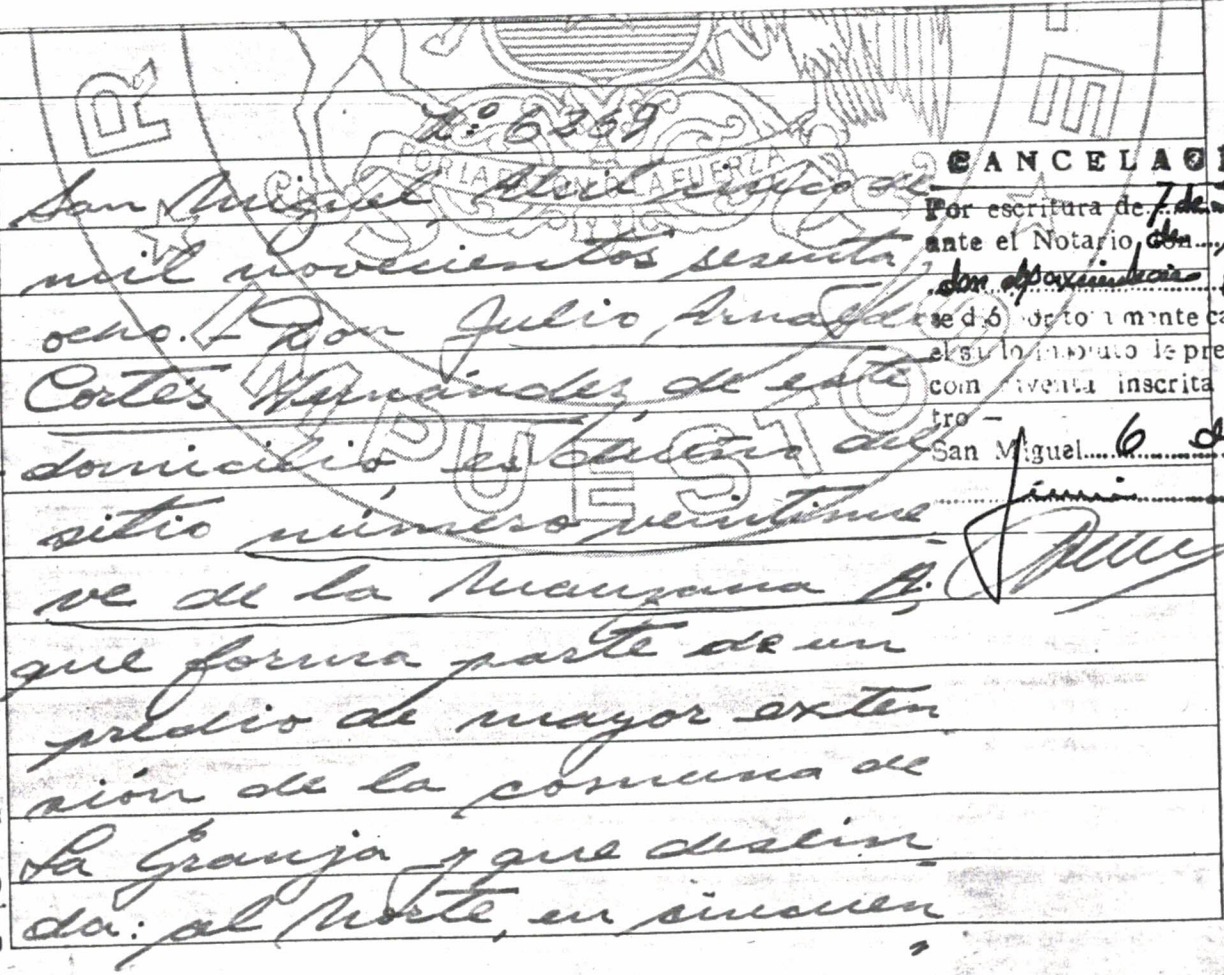 Nº 6369
San Miguel, Abril cinco de
mil novecientos sesenta
ocho.- Don Julio Arnaldo
Cortés Hernández, de este
domicilio es dueño del
sitio número veintinue-
ve de la Manzana A;
que forma parte de un
predio de mayor exten
sión de la comuna de
La Granja y que deslin-
da: al Norte, en cincuen
CANCELACI
Por escritura de 7 de
ante el Notario don
se dió por totalmente ca
el saldo insoluto de pre
compraventa inscrita
tro —
San Miguel 6 d
POR LA RAZON O LA FUERZA
R
E
IMPUESTO